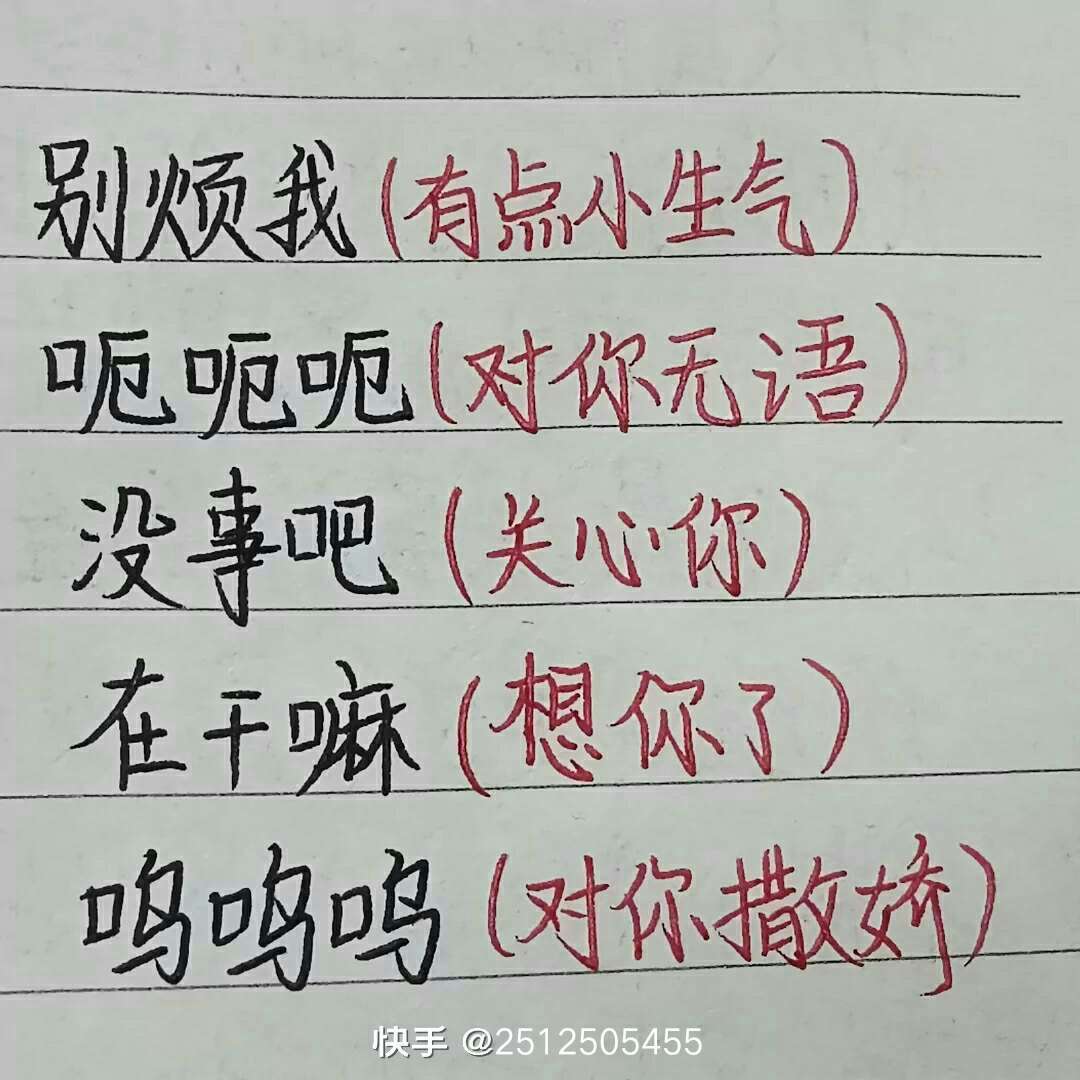 别烦我(有点小生气)
呃呃呃(对你无语)
没事吧(关心你)
在干嘛(想你了)
呜呜呜(对你撒娇)
快手 @2512505455